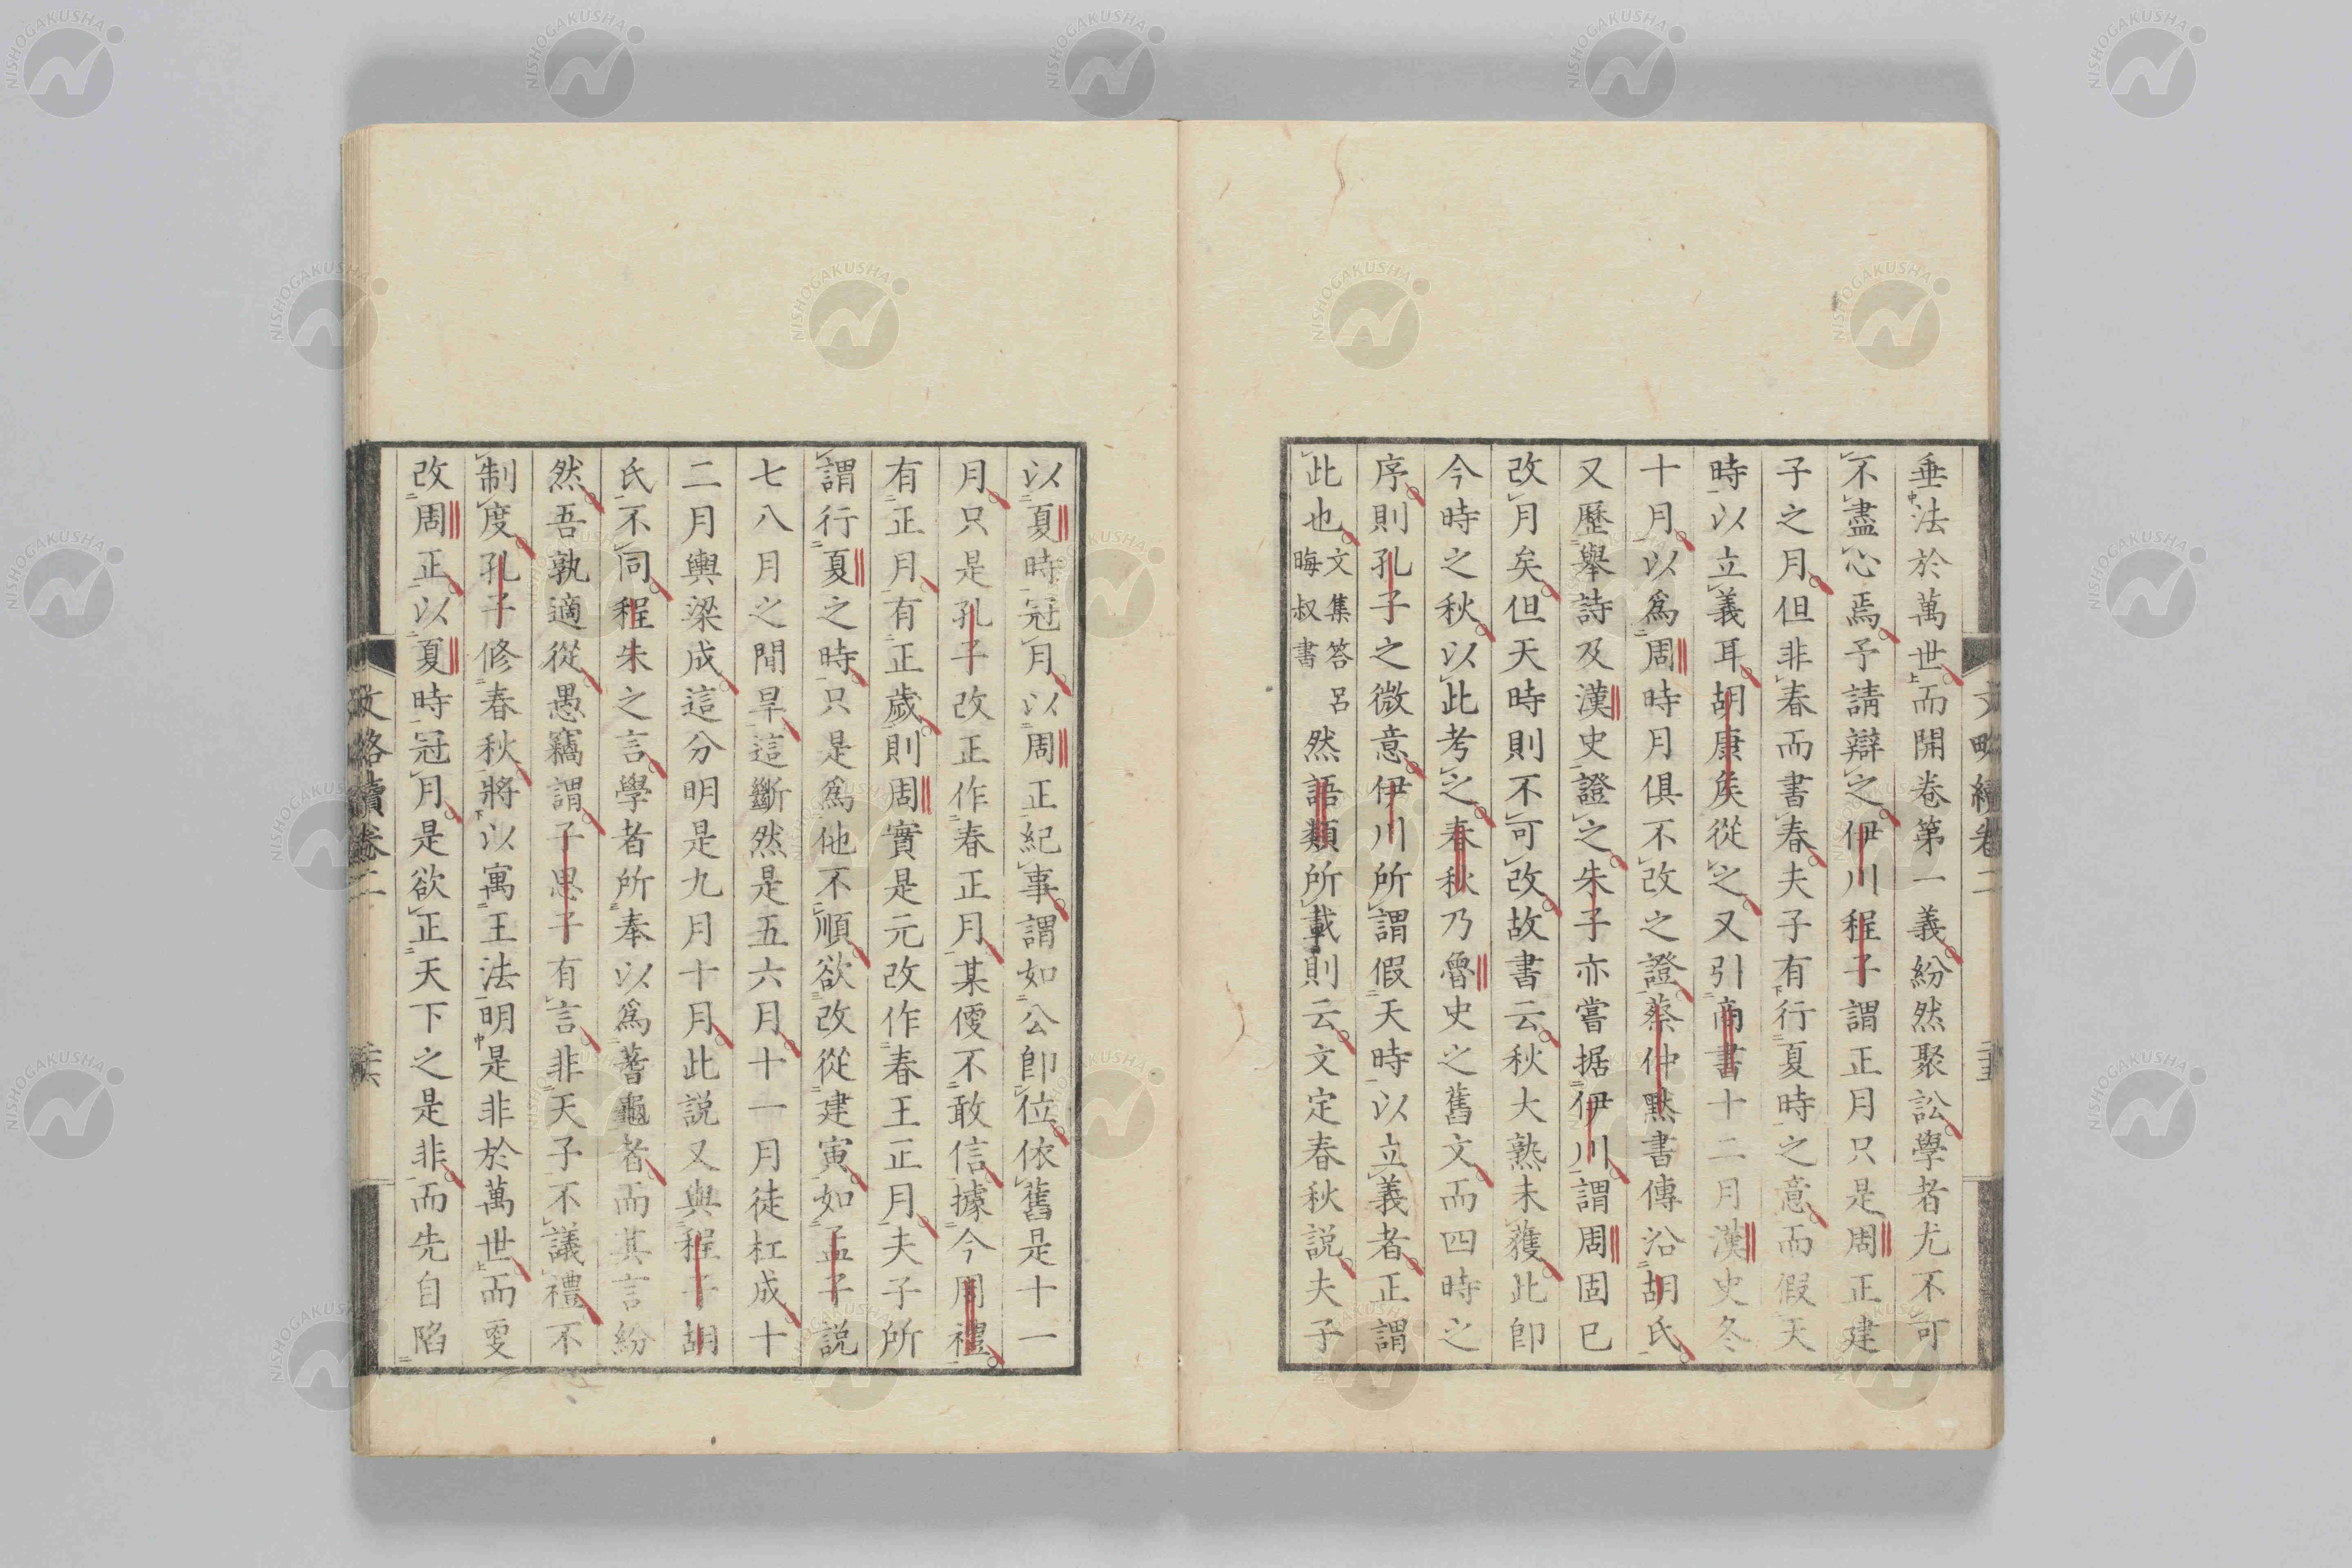 垂法於萬世而開卷第一義紛然聚訟學者尤不可
不盡心焉予請辯之伊川程子謂正月只是周正建
子之月但非春而書春夫子有行夏時之意而假天
時以立義耳胡康矦從之又引商書十二月漢史冬
十月以爲周時月俱不改之證蔡仲默書傳沿胡氏
又歷舉詩及漢史證之朱子亦嘗据伊川謂周固已
改月矣但天時則不可改故書云秋大熟未獲此卽
今時之秋以此考之春秋乃魯史之舊文而四時之
序則孔子之微意伊川所謂假天時以立義者正謂
此也文集答呂晦叔書然語類所載則云文定春秋説夫子
以夏時冠月以周正紀事謂如公卽位依舊是十一
月只是孔子改正作春正月某便不敢信據今周禮
有正月有正歲則周實是元改作春王正月夫子所
謂行夏之時只是爲他不順欲改從建寅如孟子説
七八月之間旱這斷然是五六月十一月徒杠成十
二月輿梁成這分明是九月十月此説又與程子胡
氏不同程朱之言學者所奉以爲蓍龜者而其言紛
然吾孰適從愚竊謂子思子有言非天子不議禮不
制度孔子修春秋將以寓王法明是非於萬世而要
改周正以夏時冠月是欲正天下之是非而先自陷
文略續卷二